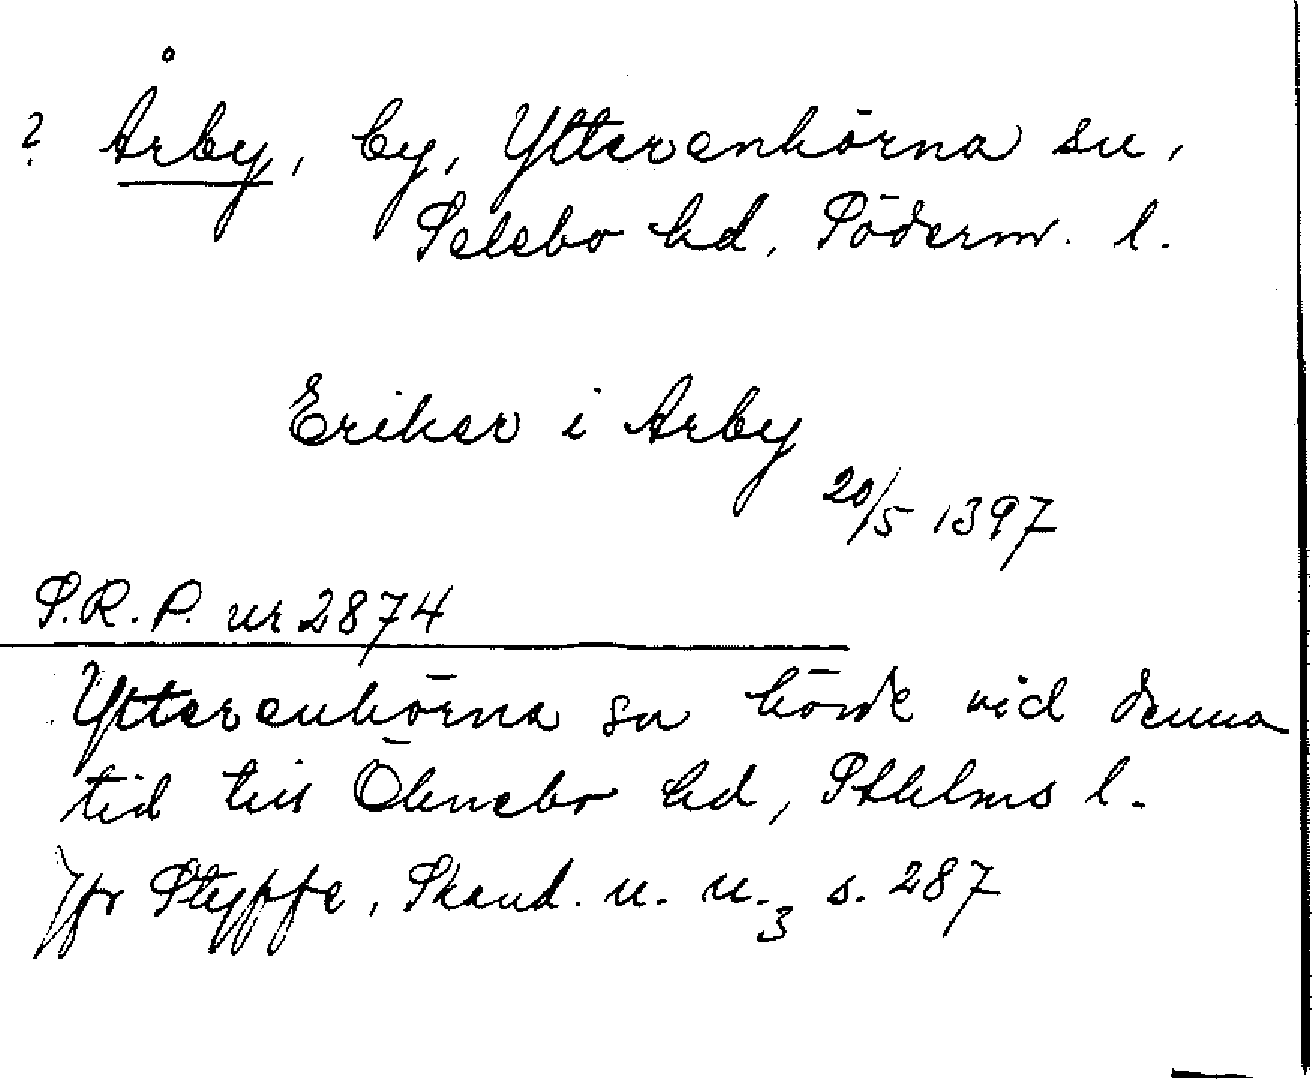 ? Årby, by, Ytterenhörna sn,
Selebo hd, Söderm. l.
Eriker i Arby
20/5 1397
S.R.P. nr 2874
Ytterenhörna sn hörde vid denna
tid till Öknebo hd, Sthlms l.
Jfr Styffe, Skand. u. u.3 s. 287